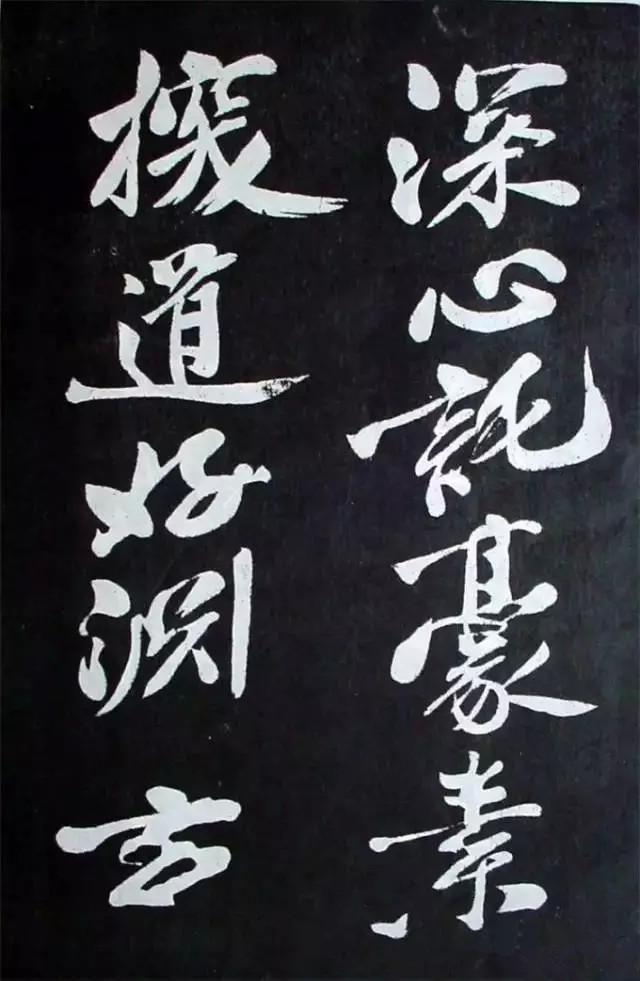 深心託豪素
探道好渊玄